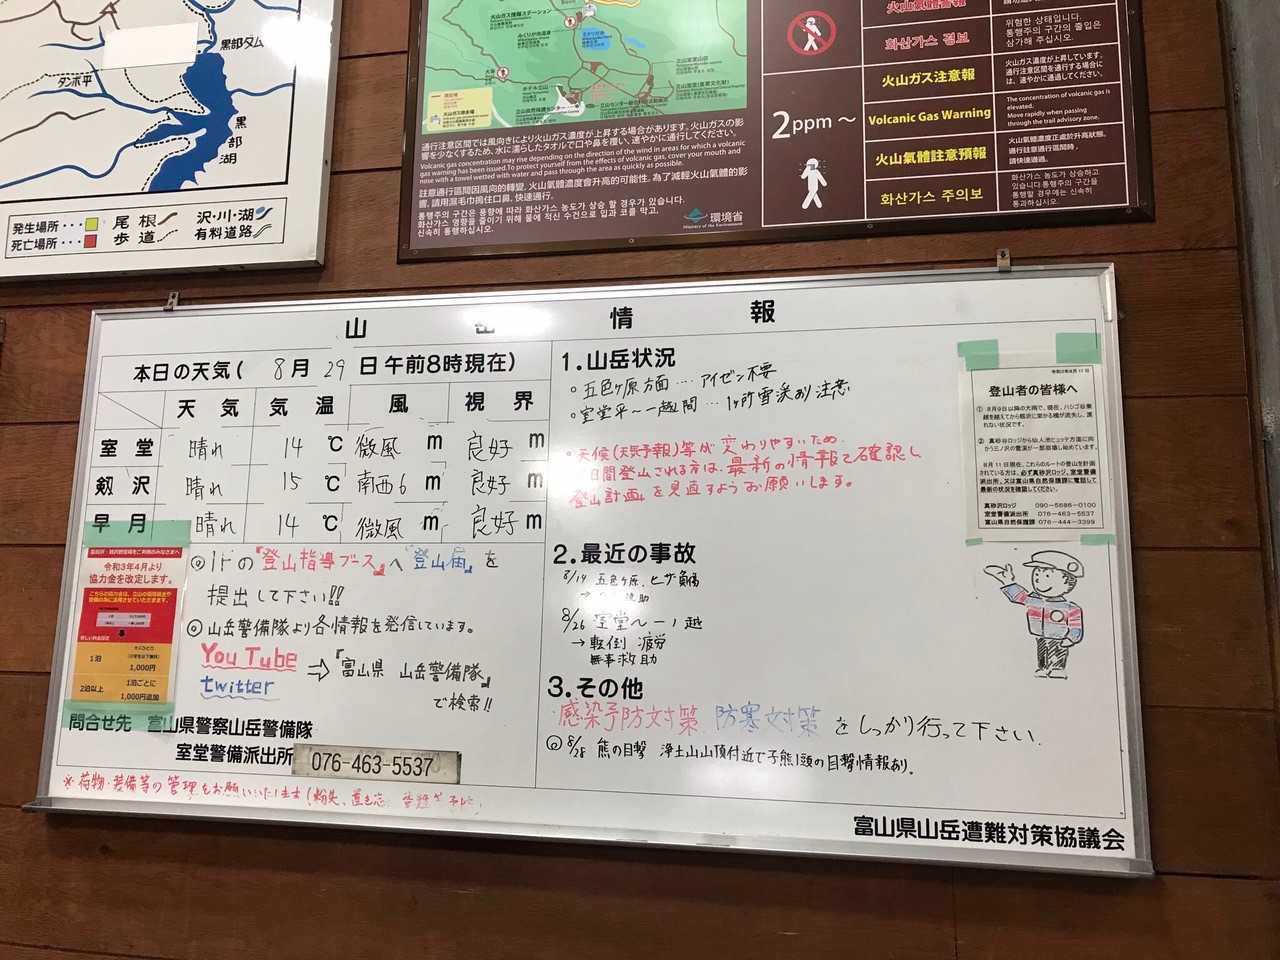 黒部ダム
タンボ平
黒部湖
発生場所・・・
死亡場所・・・
尾根
歩道
沢・川・湖
有料道路
火山ガス情報ステーション
みくりが池温泉
ホテル立山
通行注意区間では風向きにより火山ガス濃度が上昇する場合があります。火山ガスの影
響を少なくするため、水に濡らしたタオルで口や鼻を覆い、速やかに通行してください。
Volcanic gas concentration may rise depending on the direction of the wind in areas for which a volcanic
gas warning has been issued. To protect yourself from the effects of volcanic gas, cover your mouth and
nose with a towel wetted with water and pass through the area as quickly as possible.
註意通行區間因風向的轉變，火山氣體濃度會升高的可能性。為了減輕火山氣體的影
響，請用濕毛巾捂住口鼻，快速通行。
통행주의 구간은 풍향에 따라 화산가스 농도가 상승 할 경우가 있습니다.
화산가스 영향을 줄이기 위해 물에 적신 수건으로 입과 코를 막고,
신속히 통행하십시오.
環境省
Ministry of the Environment
2ppm～
火山氣體警報
화산가스 경보
위험한 상태입니다.
통행주의 구간의 출입은
삼가해 주십시오.
火山ガス注意報
火山ガス濃度が上昇しています。
通行注意区間を通行する場合に
は、速やかに通過してください。
Volcanic Gas Warning
The concentration of volcanic gas is
elevated.
Move rapidly when passing
through the trail advisory zone.
火山氣體註意預報
火山氣體濃度正處於升高狀態,
通行註意通行區間時,
請快速通過。
화산가스 주의보
화산가스 농도가 상승하고
있습니다.통행주의 구간을
통행할 경우에는 신속히
통과하십시오.
山岳情報
本日の天気( 8月29日午前8時現在)
天気 気温 風 視界
室堂 晴れ 14℃ 微風 m 良好 m
剱沢 晴れ 15℃ 南西6 m 良好 m
早月 晴れ 14℃ 微風 m 良好 m
◎1Fの『登山指導ブース』へ『登山届』を
提出して下さい!!
◎山岳警備隊より各情報を発信しています。
YouTube
twitter
→『富山県 山岳警備隊』
で検索!!
令和3年4月より
協力金を改定します。
1泊
1,000円
2泊以上
1泊ごとに
1,000円追加
問合せ先 富山県警察山岳警備隊
室堂警備派出所 076-463-5537
※荷物・装備等の管理をお願いいたします
1.山岳状況
○五色ヶ原方面…アイゼン不要
○室堂平～一ノ越間…1ヶ所雪渓あり注意
○天候(天気予報)等が変わりやすいため、
日間登山される方は、最新の情報で確認し
登山計画』を見直すようお願いします。
2.最近の事故
8/19 五色ヶ原、ヒザ負傷
8/26 室堂～一ノ越
→転倒 疲労
無事救助
3.その他
感染予防対策、防寒対策をしっかり行って下さい.
◎8/28 熊の目撃 浄土山山頂付近で子熊1頭の目撃情報あり。
登山者の皆様へ
真砂沢ロッジ 090-5686-0100
室堂警備派出所 076-463-5537
富山県自然保護課 076-444-3399
富山県山岳遭難対策協議会